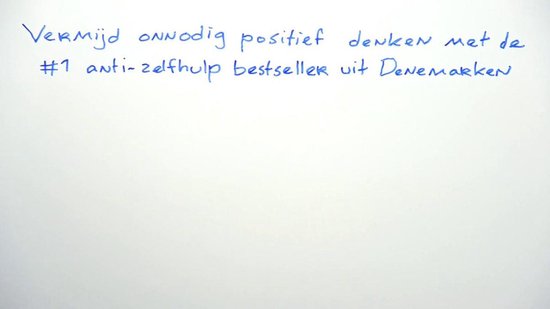 Vermijd onnodig positief denken met de
#1 anti-zelfhulp bestseller uit Denemarken